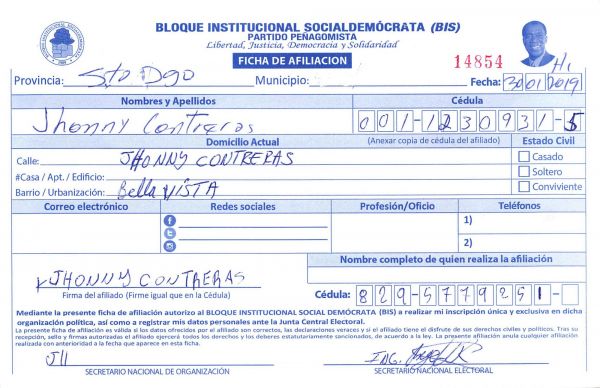 BLOQUE INSTITUCIONAL SOCIALDEMÓCRATA (BIS)
PARTIDO PEÑAGOMISTA
Libertad, Justicia, Democracia y Solidaridad
FICHA DE AFILIACION
14854
Provincia: Sto Dgo Municipio: Fecha: 30/01/2019
Nombres y Apellidos Cédula
Jhonny Contreras 001-1230931-5
Domicilio Actual (Anexar copia de cédula del afiliado) Estado Civil
Calle: JHONNY CONTRERAS Casado
#Casa / Apt. / Edificio: Soltero
Barrio / Urbanización: Bella VISTA Conviviente
Correo electrónico Redes sociales Profesión/Oficio Teléfonos
1)
2)
Nombre completo de quien realiza la afiliación
JHONNY CONTRERAS
Firma del afiliado (Firme igual que en la Cédula) Cédula: 829-5779251-
Mediante la presente ficha de afiliación autorizo al BLOQUE INSTITUCIONAL SOCIAL DEMÓCRATA (BIS) a realizar mi inscripción única y exclusiva en dicha
organización política, así como a registrar mis datos personales ante la Junta Central Electoral.
La presente ficha de afiliación es válida si los datos ofrecidos por el afiliado son correctos, las declaraciones veraces y si el afiliado tiene el disfrute de sus derechos civiles y políticos. Tras su
recepción, sello y firmas autorizadas el afiliado ejercerá todos los derechos y los deberes estatutariamente sancionados, de acuerdo a la ley. La presente afiliación anula cualquier afiliación
realizada con anterioridad a la fecha que aparece en esta ficha.
JH ING.
SECRETARIO NACIONAL DE ORGANIZACIÓN SECRETARIO NACIONAL ELECTORAL